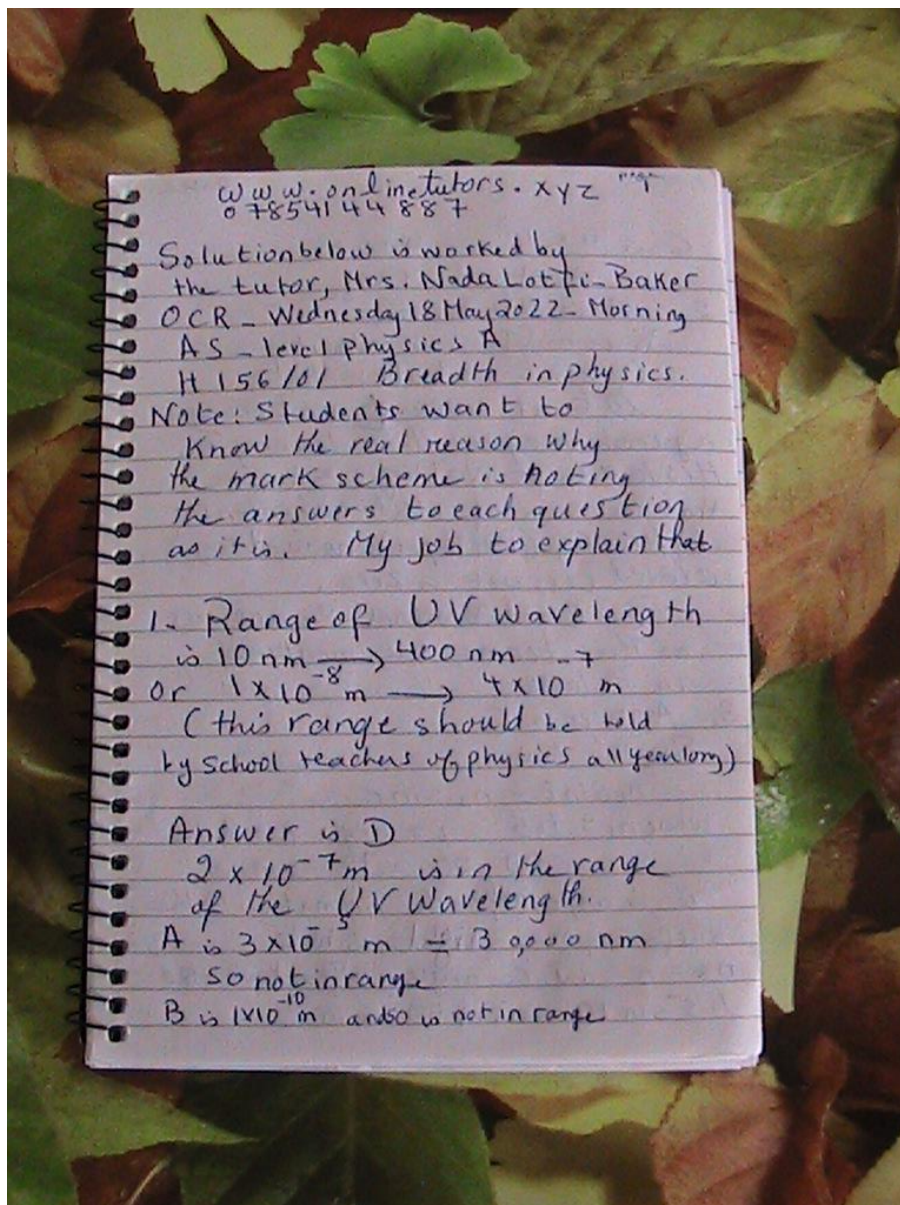 www.onlinetutors.xyz
07854144887
Solution below is worked by
the tutor, Mrs. Nada Lotfi-Baker
OCR - Wednesday 18 May 2022 - Morning
AS - level physics A
H156/01 Breadth in physics.
Note: Students want to
Know the real reason why
the mark scheme is noting
the answers to each question
as it is. My job to explain that
1- Range of UV wavelength
is 10 nm → 400 nm
Or 1 x 10⁻⁸ m → 4 x 10⁻⁷ m
(this range should be told
by school teachers of physics all year long)
Answer is D
2 x 10⁻⁷ m is in the range
of the UV wavelength.
A is 3 x 10⁻⁵ m = 30,000 nm
so not in range
B is 1x10⁻¹⁰ m and so is not in range